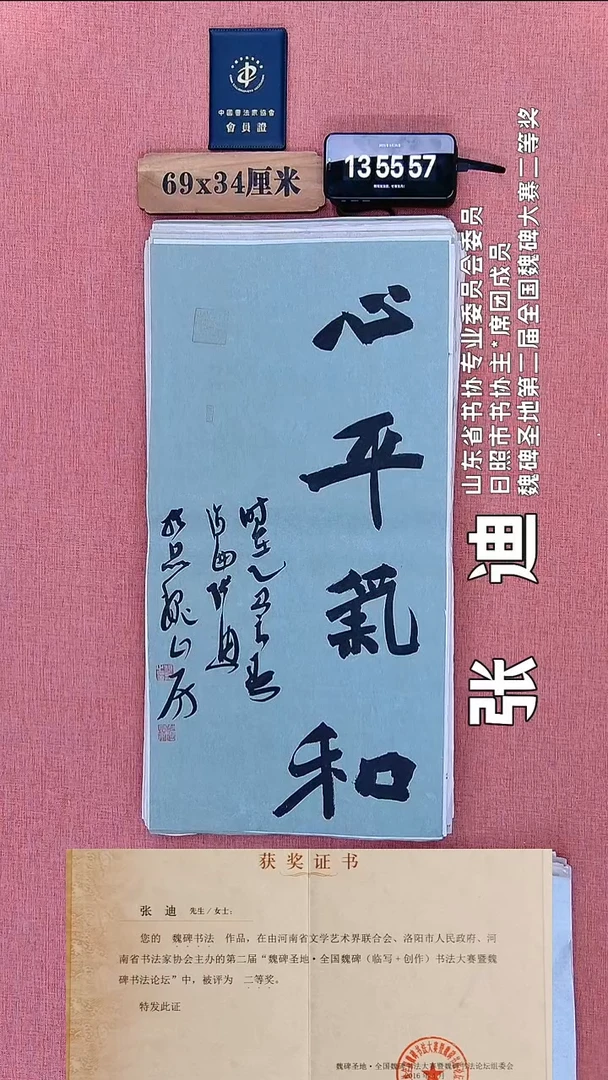 中國書法家協會
會員證
69x34厘米
13 55 57
山东省书协专业委员会委员
日照市书协主*席团成员
魏碑圣地第二届全国魏碑大赛二等奖
张 迪
心平氣和
时在乙巳之春
获奖证书
张 迪 先生/女士:
您的 魏碑书法 作品,在由河南省文学艺术界联合会、洛阳市人民政府、河
南省书法家协会主办的第二届“魏碑圣地·全国魏碑(临写+创作)书法大赛暨魏
碑书法论坛”中,被评为 二等奖。
特发此证
魏碑圣地·全国魏碑书法大赛暨魏碑书法论坛组委会